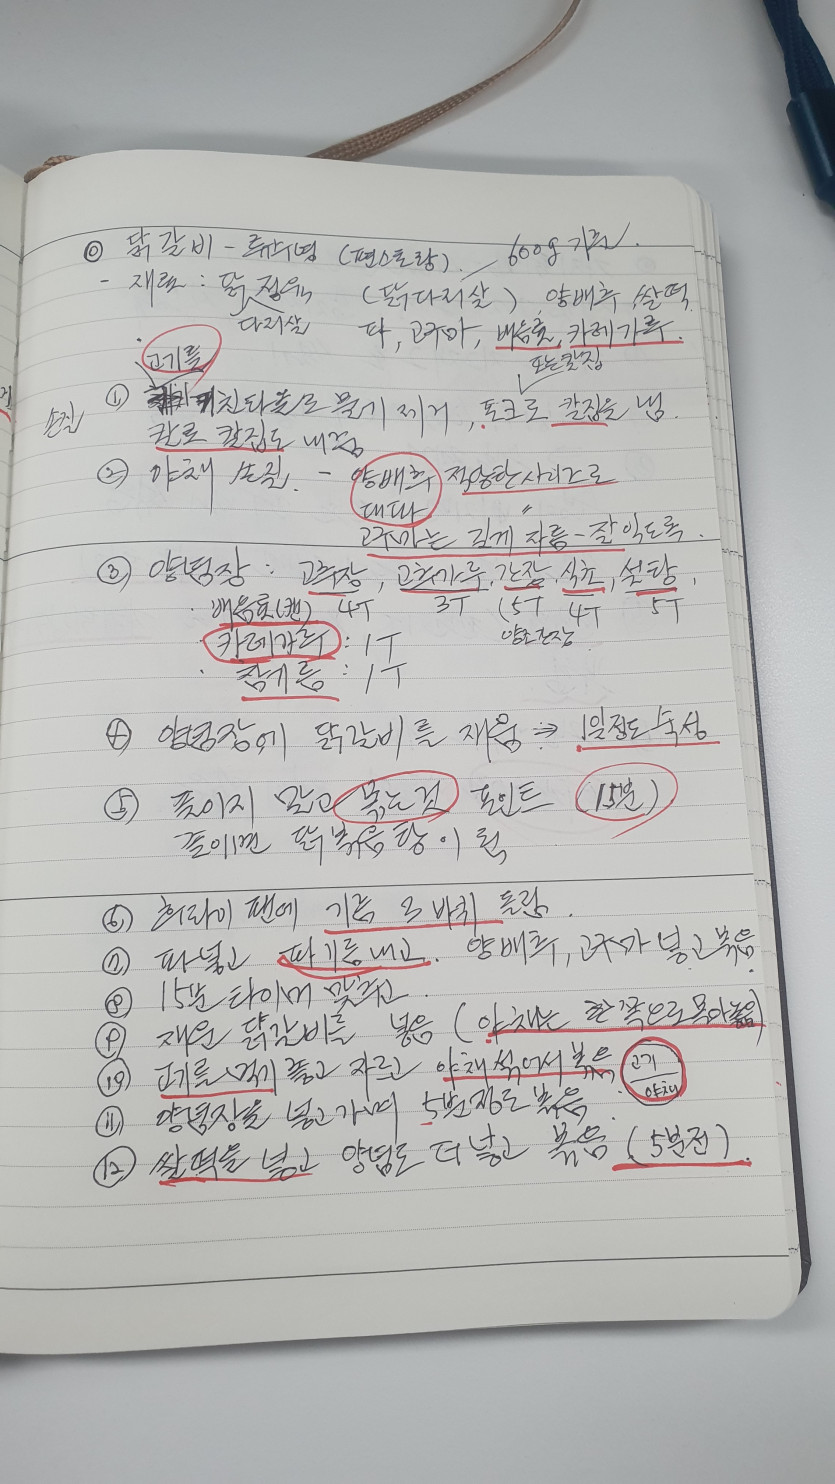 ◎ 닭갈비 - 류수영 (편스토랑). 600g 기준.
- 재료 : 닭 정육 (닭다리살), 양배추, 쌀떡
다리살 파, 고구마, 배음료, 카레가루.
고기를 또는 칼집
손질 ① 키친타올로 물기 제거, 포크로 칼집을 냄.
칼로 칼집도 내줌
② 야채 손질. - 양배추 적당한 사이즈로
대파 〃
고구마는 길게 자름 - 잘 익도록.
③ 양념장 : 고추장, 고추가루, 간장, 식초, 설탕,
4T 3T 15T 4T 5T
· 배음료(캔) 양조간장
· 카레가루 : 1T
· 참기름 : 1T
④ 양념장에 닭갈비를 재움 ⇒ 1일정도 숙성
⑤ 졸이지 말고 볶는것 포인트 (15분)
졸이면 닭볶음탕이 됨
⑥ 후라이 팬에 기름 3바퀴 돌림.
⑦ 파넣고 파기름내고. 양배추, 고구마 넣고 볶음
⑧ 15분 타이머 맞추고.
⑨ 재운 닭갈비를 넣음 (야채는 한쪽으로 몰아놓음)
⑩ 고기를 익기 자르고 야채 섞어서 볶음 고기
야채
⑪ 양념장을 넣고가며 5번정도 볶음
⑫ 쌀떡을 넣고 양념도 더 넣고 볶음 (5분전).